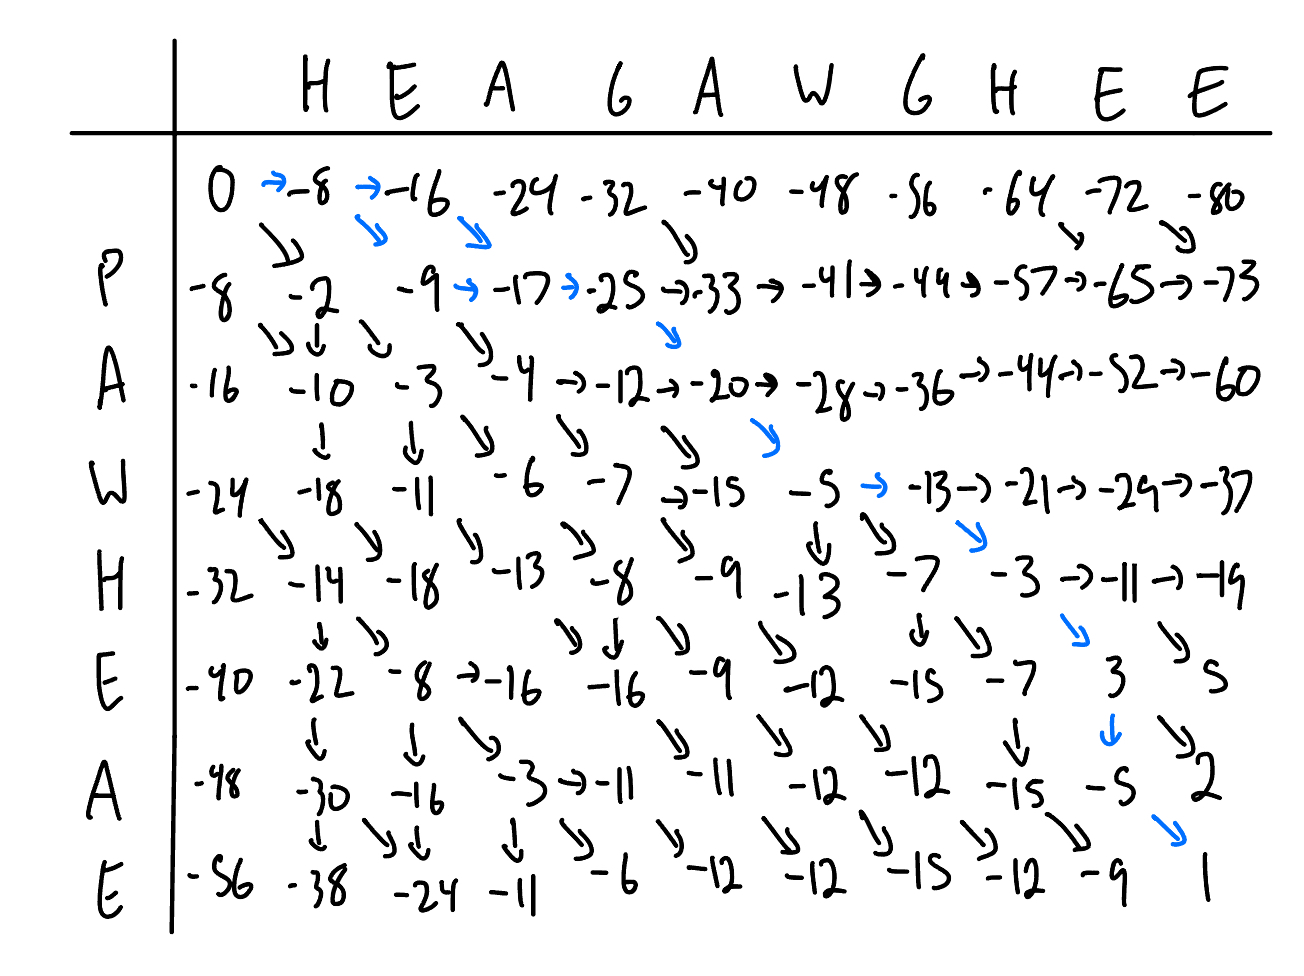 H E A G A W G H E E
0 → -8 → -16 -24 -32 -40 -48 -56 -64 -72 -80
P -8 -2 -9 → -17 → -25 → -33 → -41 → -49 → -57 → -65 → -73
A -16 -10 -3 -4 → -12 → -20 → -28 → -36 → -44 → -52 → -60
W -24 -18 -11 -6 -7 → -15 -5 → -13 → -21 → -29 → -37
H -32 -14 -18 -13 -8 -9 -13 -7 -3 → -11 → -19
E -40 -22 -8 → -16 -16 -9 -12 -15 -7 3 5
A -48 -30 -16 -3 → -11 -11 -12 -12 -15 -5 2
E -56 -38 -24 -11 -6 -12 -12 -15 -12 -9 1